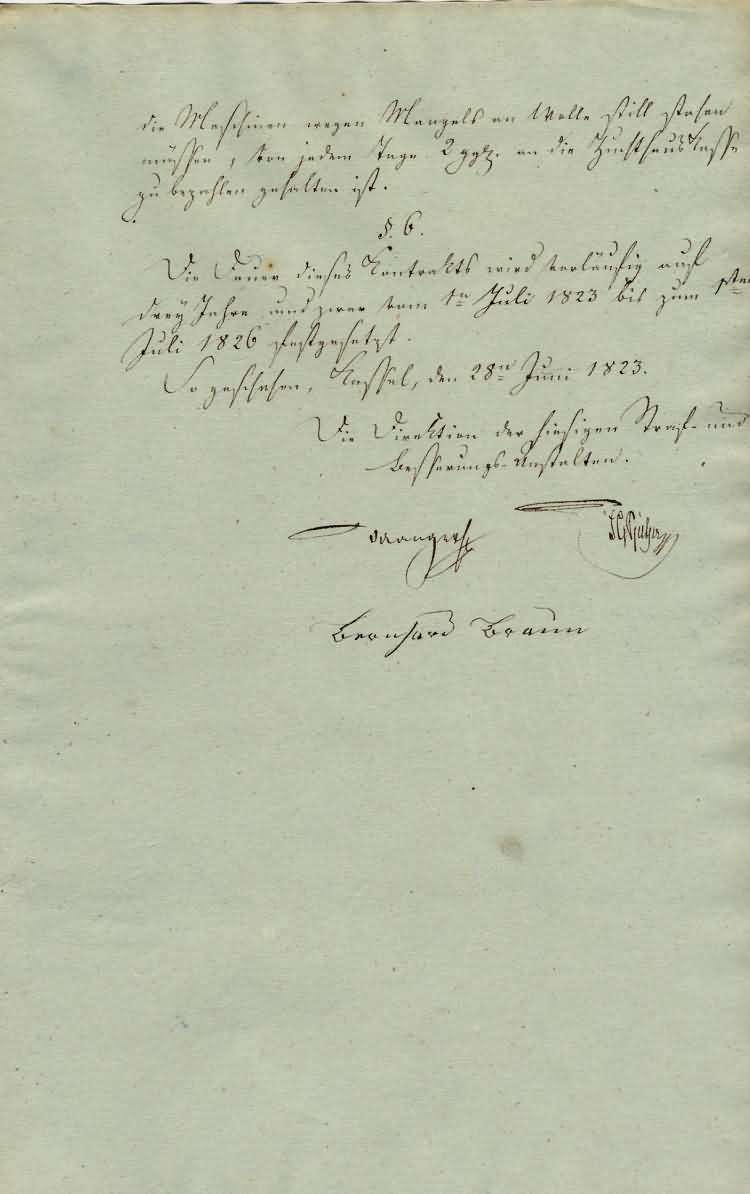 die Maschinen wegen Mangels an Wolle still stehen
müssen, von jedem Tage 2 ggr. an die Zuchthaus Kasse
zu bezahlen gehalten ist.
§. 6.
Die Dauer dieses Kontrakts wird vorläufig auf
drey Jahre und zwar vom 1n Juli 1823 bis zum 1sten
Juli 1826 festgesetzt.
So geschehen, Kassel, den 28n Juni 1823.
Die Direktion der hiesigen Straf- und
Besserungs-Anstalten.
Bernhard Braun